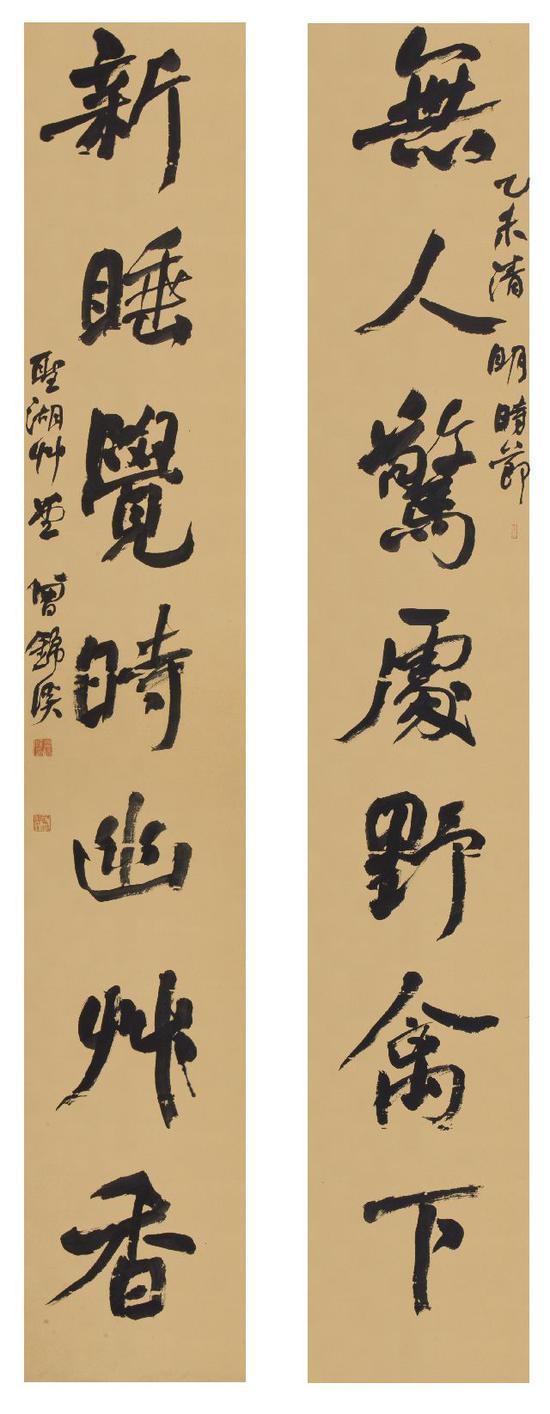 無人驚處野禽下
乙未清明時節
新睡覺時幽艸香
聖湖艸堂曾錦溪